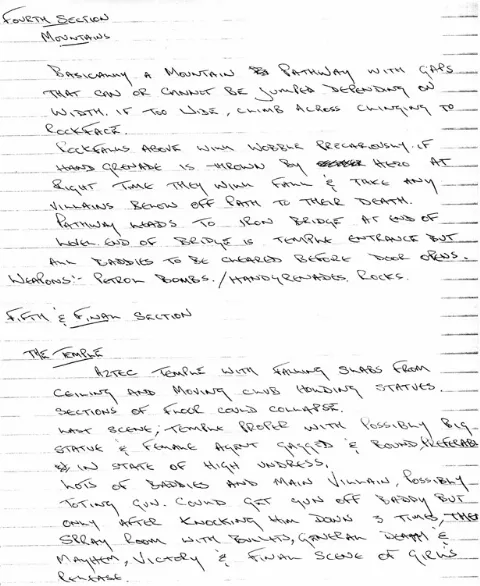 FOURTH SECTION
MOUNTAINS
BASICALLY A MOUNTAIN PATHWAY WITH GAPS
THAT CAN OR CANNOT BE JUMPED DEPENDING ON
WIDTH. IF TOO WIDE, CLIMB ACROSS CLINGING TO
ROCKFACE.
ROCKFALLS ABOVE WILL WOBBLE PRECARIOUSLY. IF
HAND GRENADE IS THROWN BY HERO AT
RIGHT TIME THEY WILL FALL & TAKE ANY
VILLAINS BELOW OFF PATH TO THEIR DEATH.
PATHWAY LEADS TO IRON BRIDGE AT END OF
LEVEL. END OF BRIDGE IS TEMPLE ENTRANCE BUT
ALL BADDIES TO BE CLEARED BEFORE DOOR OPENS.
WEAPONS:- PETROL BOMBS./HANDGRENADES, ROCKS.
FIFTH & FINAL SECTION
THE TEMPLE
AZTEC TEMPLE WITH FALLING SLABS FROM
CEILING AND MOVING CLUB HOLDING STATUES.
SECTIONS OF FLOOR COULD COLLAPSE.
LAST SCENE; TEMPLE PROPER WITH POSSIBLY BIG
STATUE & FEMALE AGENT GAGGED & BOUND, PREFERABLY
IN STATE OF HIGH UNDRESS.
LOTS OF BADDIES AND MAIN VILLAIN, POSSIBLY
TOTING GUN. COULD GET GUN OFF BADDY BUT
ONLY AFTER KNOCKING HIM DOWN 3 TIMES, THEN
SPRAY ROOM WITH BULLETS, GENERAL DEATH &
MAYHEM, VICTORY & FINAL SCENE OF GIRLS
RELEASE.